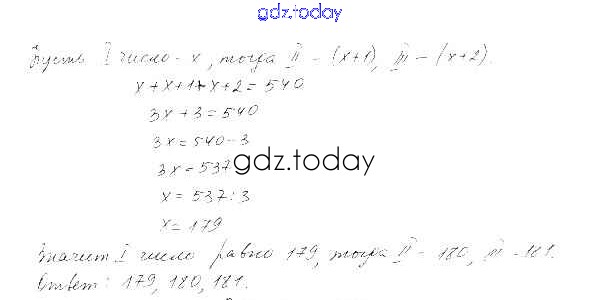 gdz.today
Пусть I число - x, тогда II - (x+1), III - (x+2).
x+x+1+x+2=540
3x+3=540
3x=540-3
3x=537
gdz.today
x=537:3
x=179
Значит I число равно 179, тогда II - 180, III - 181.
Ответ: 179, 180, 181.